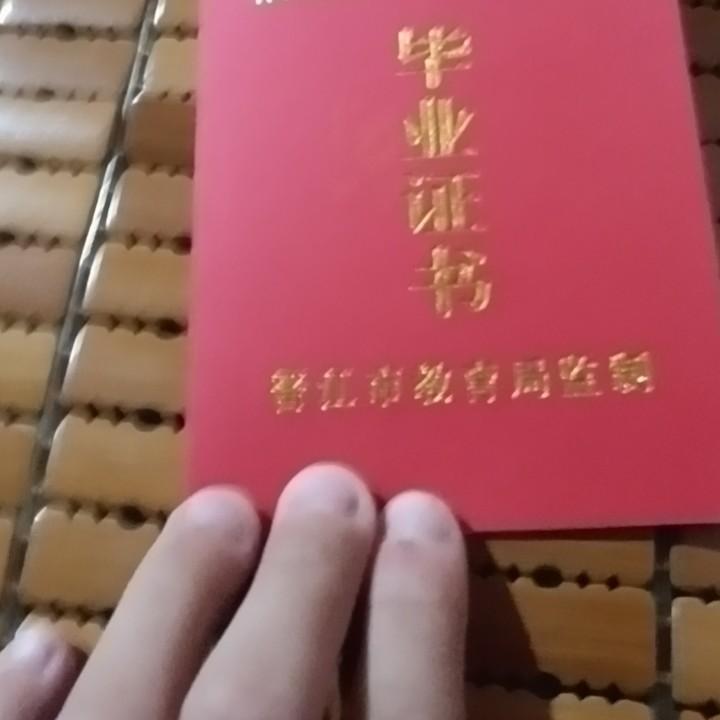 毕业证书
晋江市教育局监制